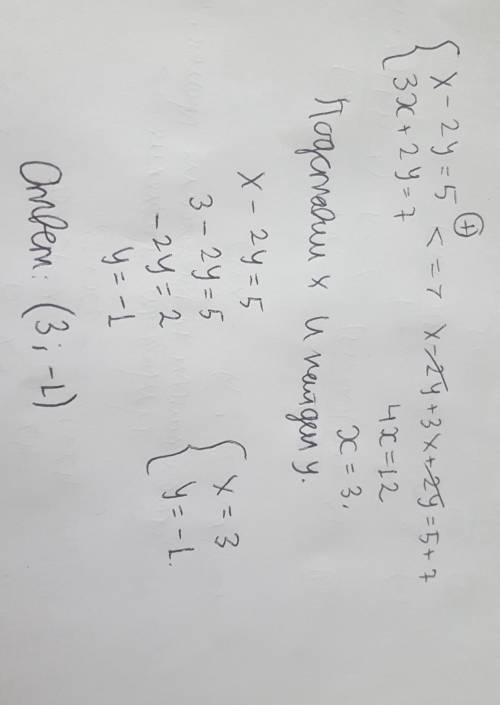 { x - 2y = 5 (+) <=> x - 2y + 3x + 2y = 5 + 7
3x + 2y = 7 4x = 12
x = 3.
Подставим x и найдем y.
x - 2y = 5
3 - 2y = 5
-2y = 2
y = -1
{ x = 3
y = -1.
Ответ: (3; -1)